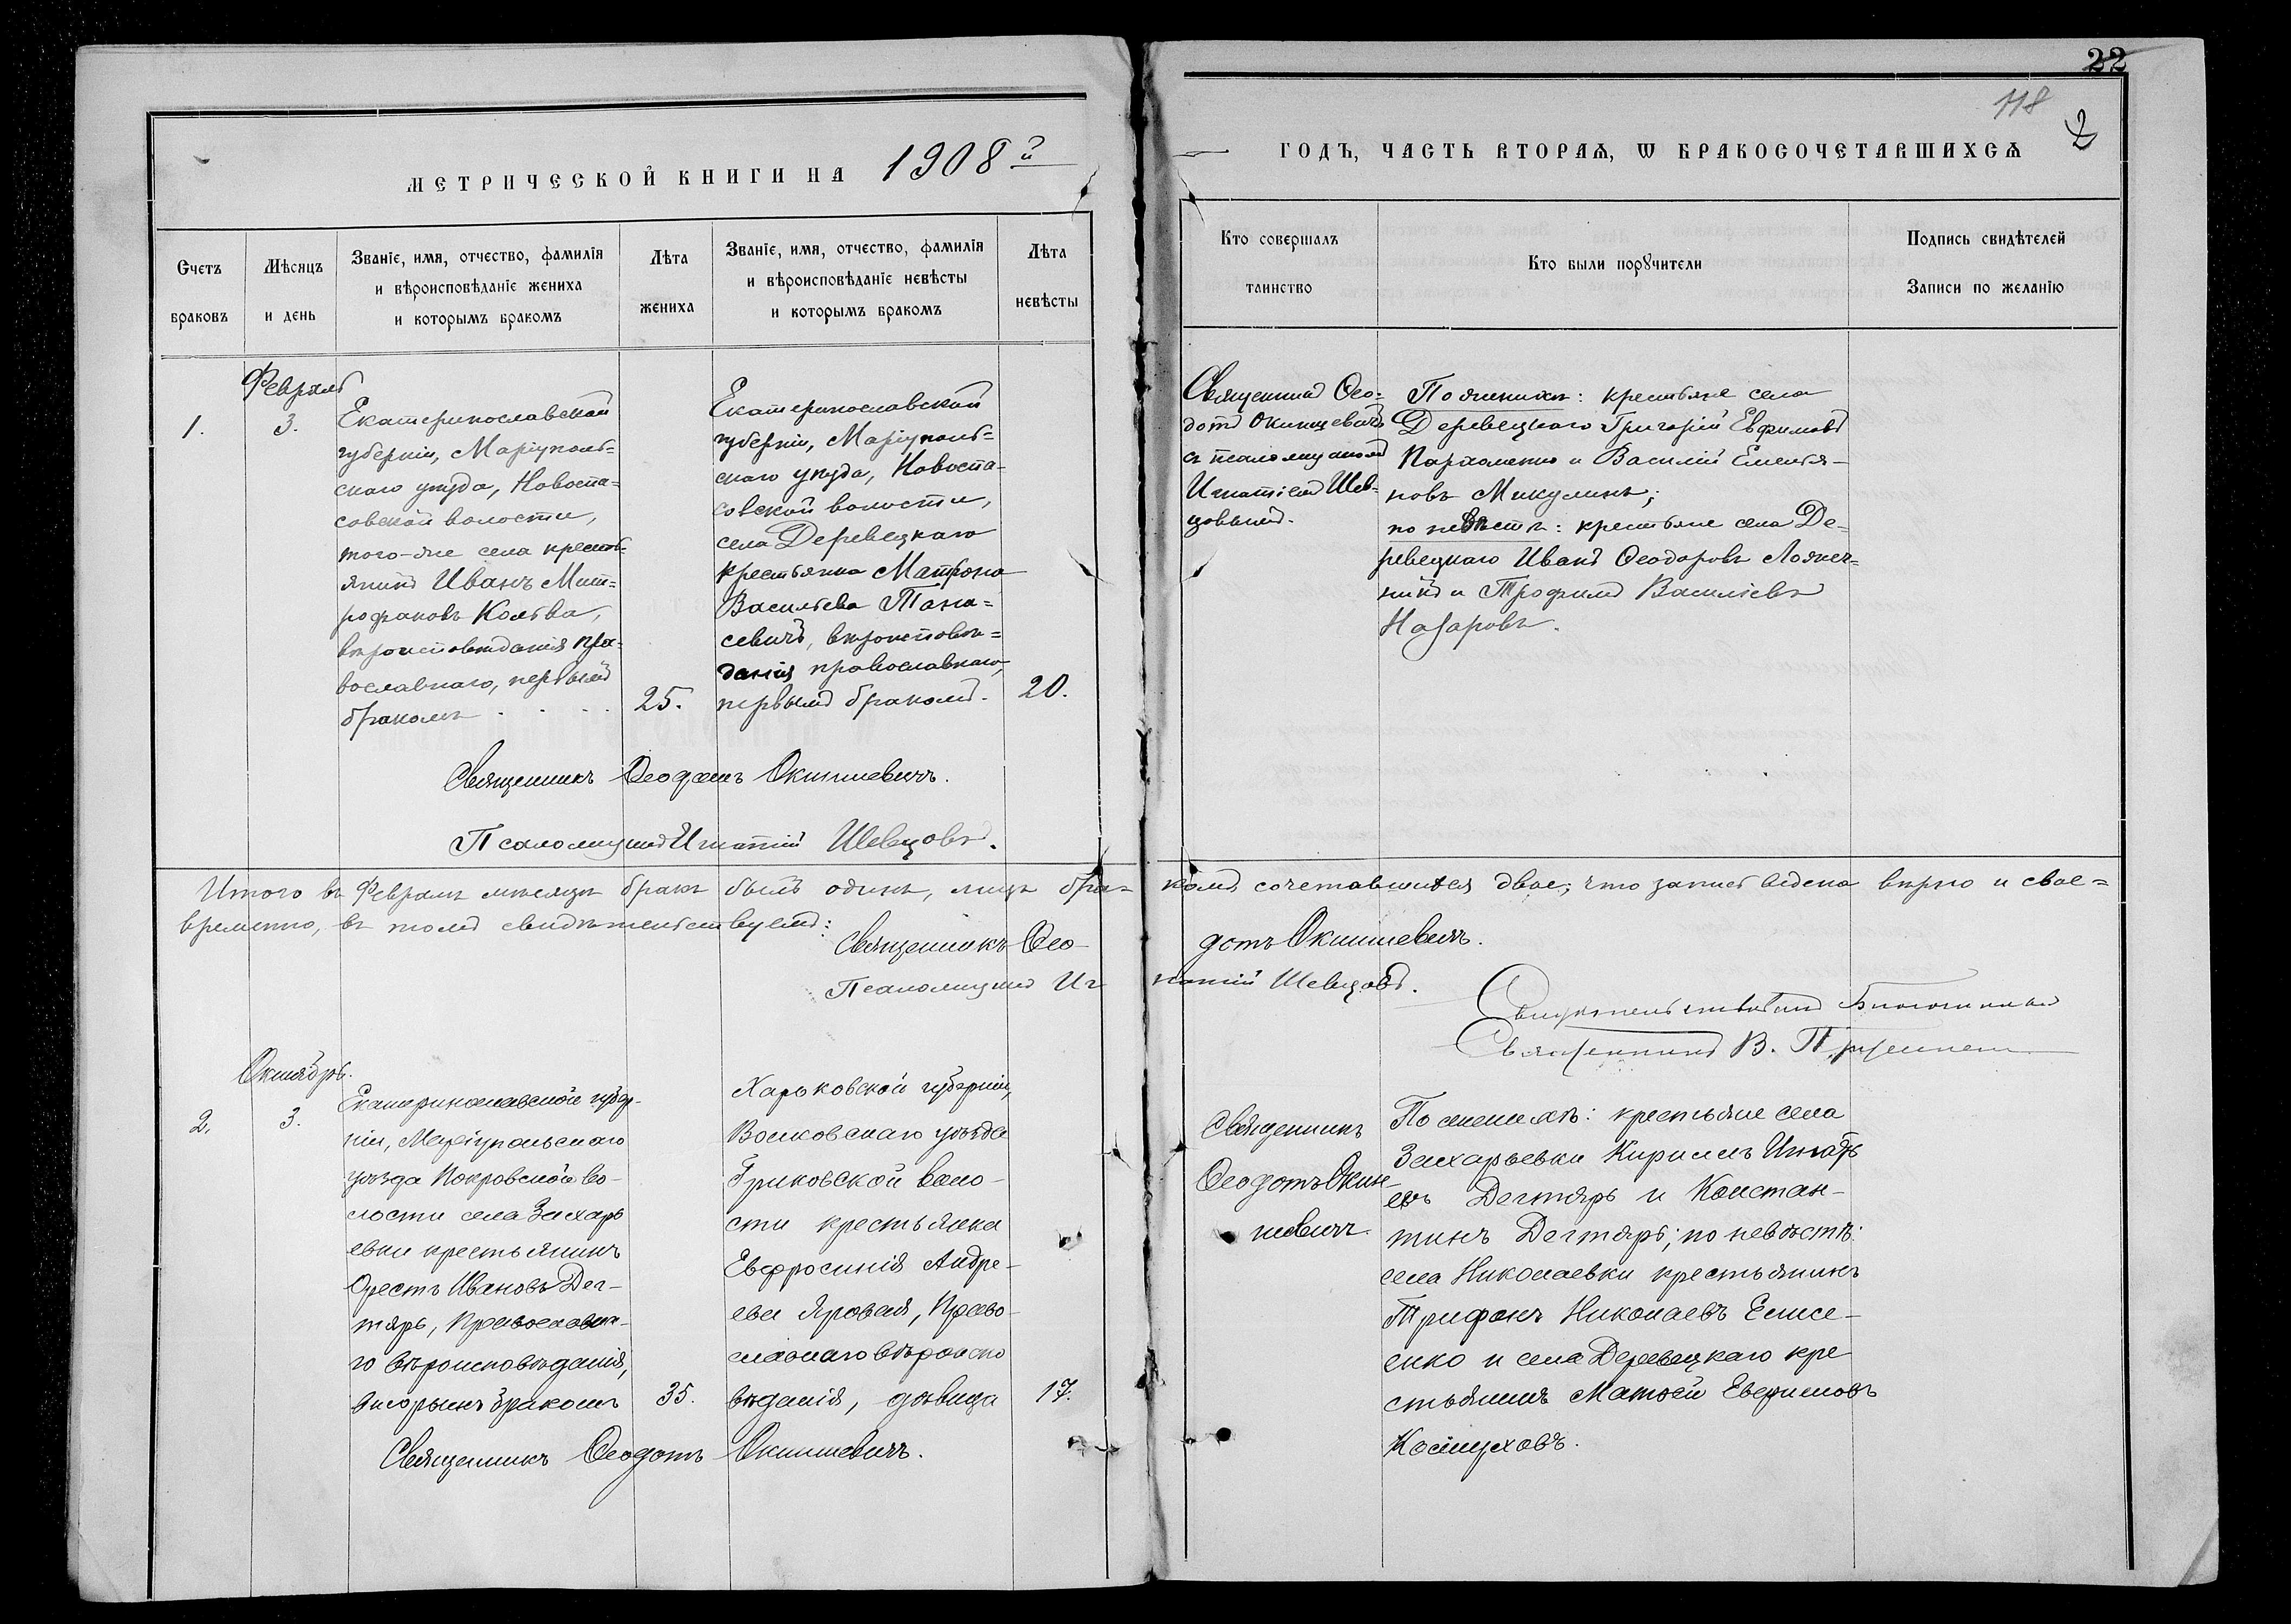 22
118
2
МЕТРИЧЕСКОЙ КНИГИ НА 1908й
ГОДЪ, ЧАСТЬ ВТОРАЯ, Ѡ БРАКОСОЧЕТАВШИХСЯ
Счетъ браковъ
Мѣсяцъ и день
Званіе, имя, отчество, фамилія
и вѣроисповѣданіе жениха
и которымъ бракомъ
Лѣта жениха
Званіе, имя, отчество, фамилія
и вѣроисповѣданіе невѣсты
и которымъ бракомъ
Лѣта невѣсты
Кто совершалъ
таинство
Кто были порꙋчители
Подпись свидѣтелей
Записи по желанію
1.
Февраль
3.
Екатеринославской
губерніи, Маріуполь=
скаго уѣзда, Новоспа=
совской волости,
того-же села кресть=
янинъ Иванъ Мит=
рофановъ Кольва,
вѣроисповѣданія пра=
вославнаго, первымъ
бракомъ
25.
Екатеринославской
губерніи, Маріуполь=
скаго уѣзда, Новоспа-
совской волости,
села Деревецкаго
крестьянка Матрона
Васильева Тана=
севичъ, вѣроисповѣ=
данія православнаго,
первымъ бракомъ.
20.
Священникъ Ѳео=
дотъ Окинщевичъ
съ псаломщикомъ
Игнатіемъ Шев=
цовымъ.
По женихѣ: крестьяне села
Деревецкаго Григорій Евфимовъ
Пархоменко и Василій Емелья-
новъ Микулинъ;
по невѣстѣ: крестьяне села Де=
ревецкаго Иванъ Ѳеодоровъ
и Трофимъ Василіевъ
Назаровъ.
Священникъ Ѳеодотъ Окиншевичъ.
Псаломщикъ Игнатій Шевцовъ.
Итого въ Февралѣ мѣсяцѣ бракъ былъ одинъ, лицъ бра= комъ сочетавшихся двое; что запись ведена вѣрно и свое=
временно, въ томъ свидѣтельствуемъ:
Священникъ Ѳео- дотъ Окиншевичъ.
Псаломщикъ Иг натій Шевцовъ.
Благочинный
Священникъ В.
2.
Октябрь.
3.
Екатеринославской губер-
ніи, Маріупольскаго
уѣзда Покровской во-
лости села Захарь
евки крестьянинъ
Орестъ Ивановъ Дег-
тярь, Православна-
го вѣроисповѣданія,
вторымъ бракомъ
35.
Харьковской губерніи,
Волковскаго уѣзда
волo-
сти крестьянка
Евфросинія Андре-
ева Яровая, Право-
славнаго вѣроиспо
вѣданія, дѣвица
17.
Священникъ
Ѳеодотъ Окин-
шевичъ.
По женихѣ: крестьяне села
Захарьевки Кириллъ Игнать
евъ Дегтярь и Констан-
тинъ Дегтярь; по невѣстѣ:
села Николаевки крестьянинъ
Трифонъ Николаевъ Елисе-
енко и села Деревецкаго кре
стьянинъ Матѳей Евфимовъ
Священникъ Ѳеодотъ Окиншевичъ.